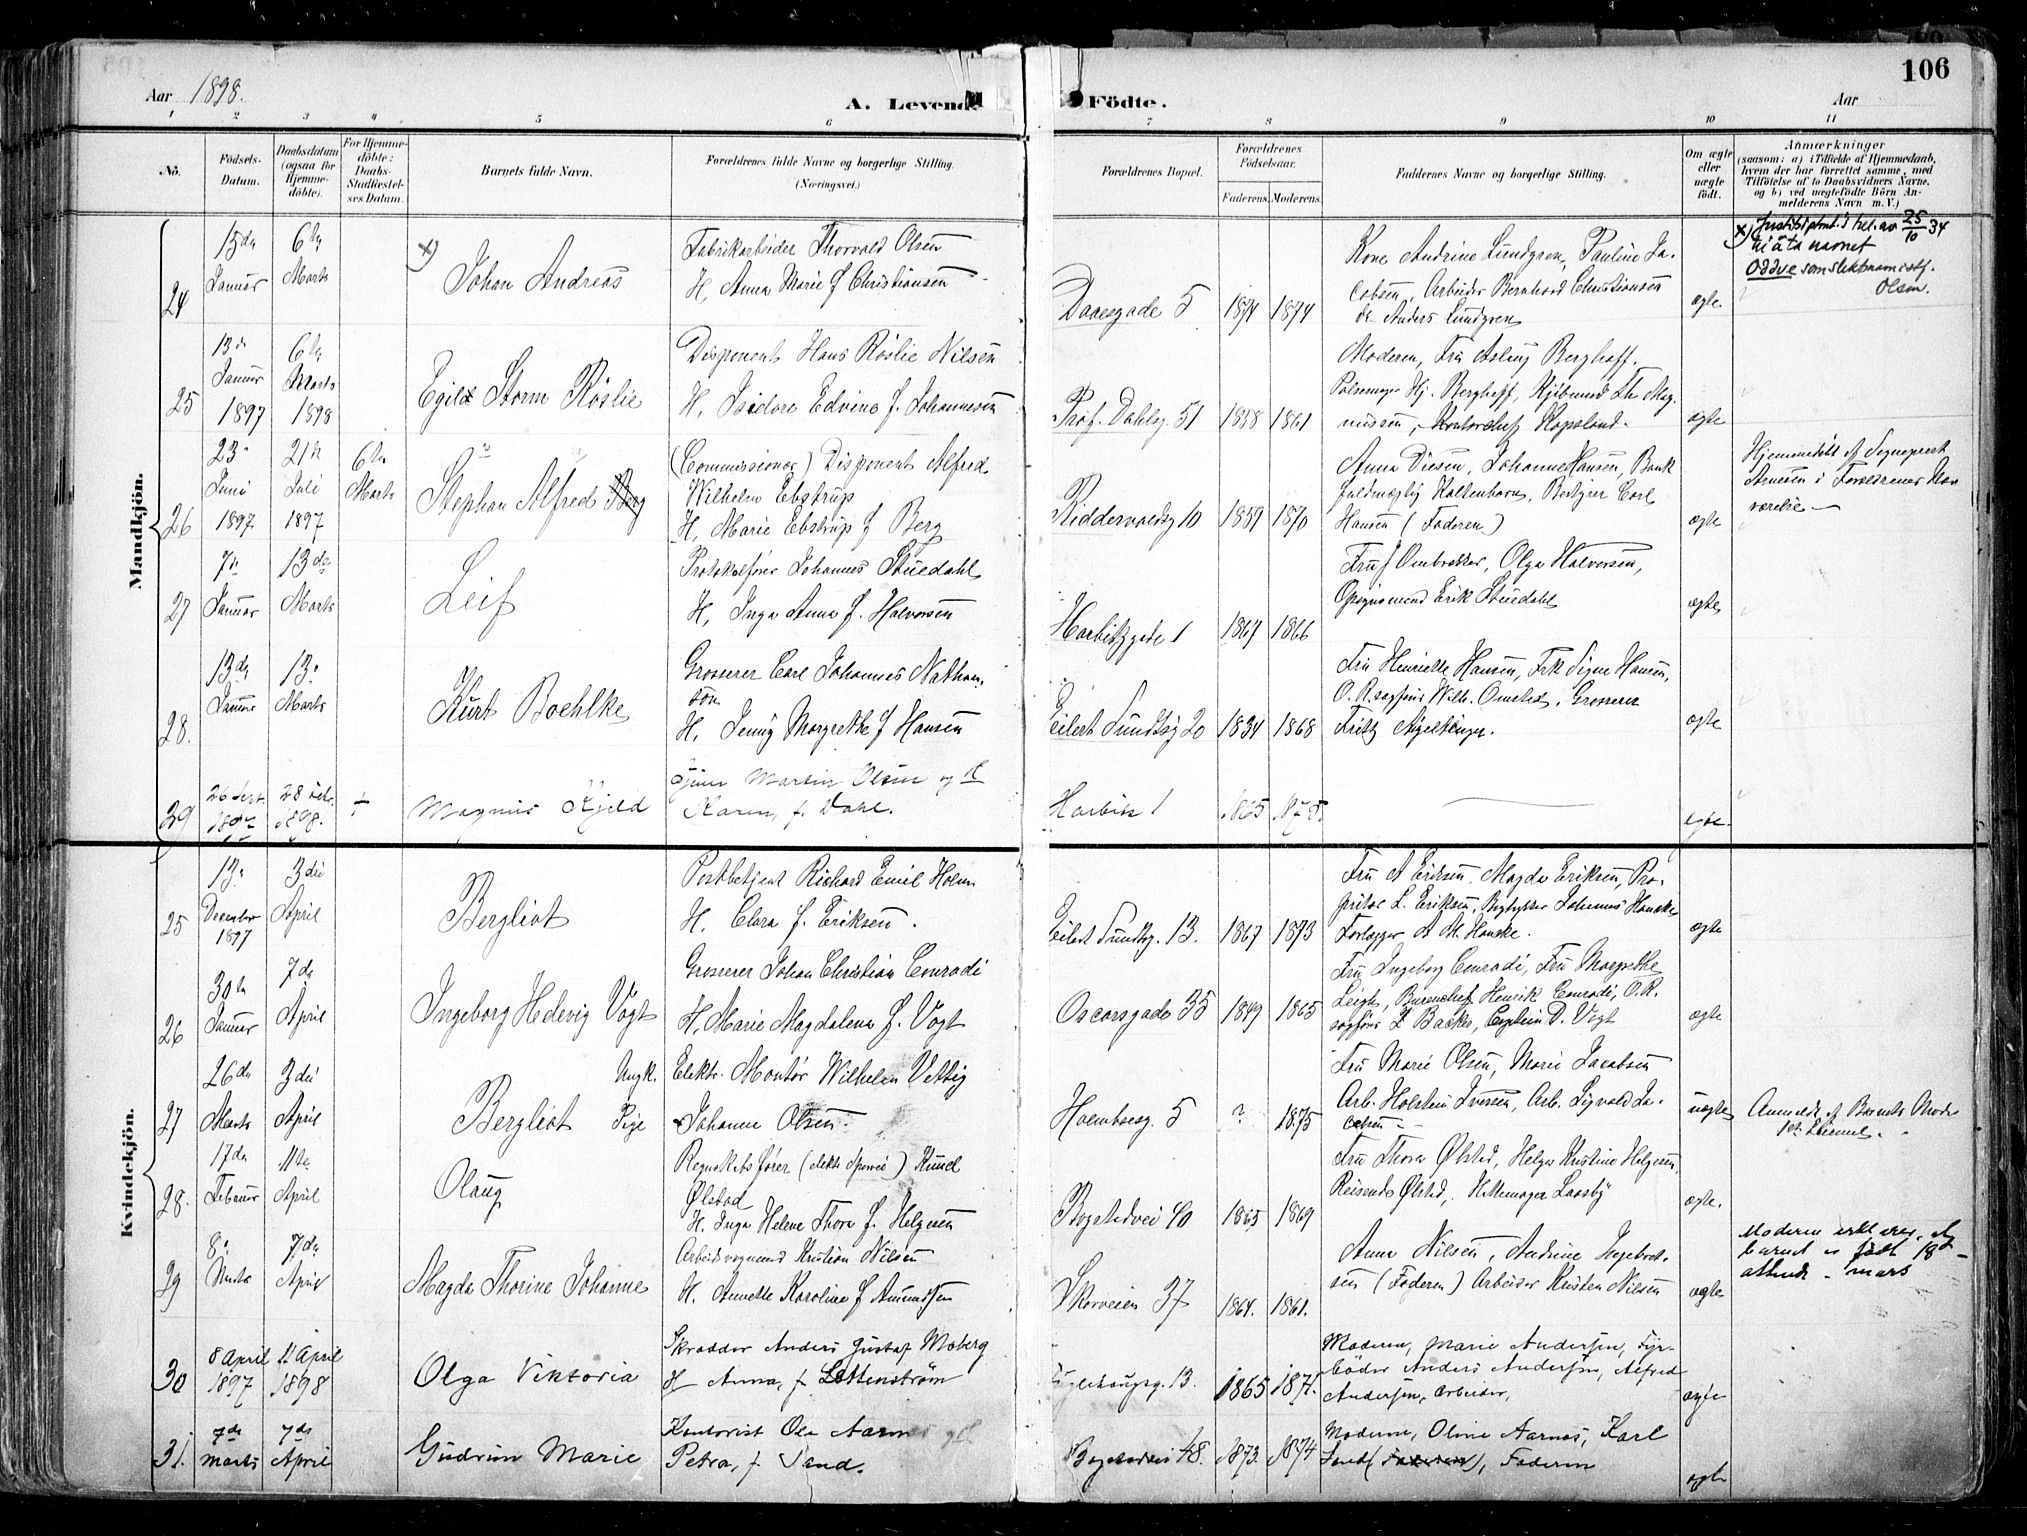 106
Aar 1898.
A. Levende
Födte.
Aar
1 2 3 4 5 6 7 8 9 10 11
No.
Födsels-
Datum.
Daabsdatum
(ogsaa for
Hjemme-
döbte).
For Hjemme-
döbte:
Daabs-
Stadfæstel-
ses Datum.
Barnets fulde Navn.
Forældrenes fulde Navne og borgerlige Stilling.
(Næringsvei.)
Forældrenes Bopæl.
Forældrenes
Födselsaar.
Faderens. Moderens.
Faddernes Navne og borgerlige Stilling.
Om ægte
eller
uægte
födt.
Anmærkninger
(saasom: a) i Tilfælde af Hjemmedaab,
hvem der har forrettet samme, med
Tilföielse af to Daabsvidners Navne,
og b) ved uægtefödte Börn An-
melderens Navn m. V.)
Mandkjön.
24
15de
Januar
6te
Marts
x) Johan Andreas
Fabrikarbeider Thorvald Olsen
H. Anna Marie f Christiansen
Daaesgade 5
1874 1874
Kone Andrine Lundgren, Pauline Ja-
cobsen, Arbeider Bernhard Christiansen
Anders Lundgren
ægte.
x) 25/10 34
til å ta navnet
Oddve som slektsnavn istf.
Olsen.
25
13de
Januar
1897
6te
Marts
1898
Egil Storm Röslie
Disponent Hans Röslie Nilsen
H. Isidore Edvine f. Johannesen
Prof. Dahlsg. 51
1858 1861
Moderen, Fru Aslaug Berghoff.
Pølsemager Hj. Berghoff, Kjøbmand Th. Mag-
nussen, Kopeland.
ægte
26
23
Juni
1897
21de
Juli
1897
6te
Marts
Stephan Alfred Berg
(Commissionær) Disponent Alfred
Wilhelm Ebstrup
H. Marie Ebstrup f Berg
Riddervoldsg 10
1859 1870
Anna Diesen, Johanne Hansen, Bank
fuldmægtig Kaltenborn, Bestyrer Carl
Hansen (Faderen)
ægte
Hjemmedöbt af Sogneprest
Arnesen i Forældrenes Nær
værelse
27
7de
Januar
13de
Marts
Leif
Protokolfører Johannes Stuedahl
H. Inga Anna f. Halvorsen
Harbitzgade 1
1867 1866
Fru Ombrekker, Olga Halvorsen,
Opsynsmand Erik Stuedahl
ægte
28.
13de
Januar
13
Marts
Kurt Boehlke
Grosserer Carl Johannes Nathan-
son
H. Jenny Margrethe f Hansen
Eilert Sundtsg 20
1834 1868
Fru Henriette Hansen, Frk Signe Hansen,
O. R. sagfører Wilh. Omsted, Grosserer
Fritz
ægte
29
26 Sept.
1897
28 Febr.
1898.
÷
Magnus Kjeld
Martin Olsen og H
Karen, f. Dahl.
Harbitz 1
1865 1875.
ægte
Kvindekjön.
25
13
December
1897
3die
April
Bergliot
Postbetjent Richard Emil Holm
H. Clara f. Eriksen.
Eilert Sundtsg. 13.
1867 1873
Fru A Eriksen, Magda Eriksen, Pro-
prietær L. Eriksen, Bogtrykker Johannes Hanche
Forlægger A. M. Hanche.
ægte
26
30te
Januar
7de
April
Ingeborg Hedevig Vogt
Grosserer Johan Christian Conradi
H. Marie Magdalena f. Vogt
Oscarsgade 35
1849 1865
Fru Ingeborg Conradi, Fru Margrethe
Leigh, Bureauchef Henrik Conradi, O. R.
sagfører L Backer, Captein D. Vogt
ægte
27
26de
Marts
3die
April
Bergliot
Ungk. Elektr. Montør Wilhelm Vettig
Pige Johanne Olsen
Holmboesg. 5
? 1875
Fru Marie Olsen, Marie Jacobsen
Arb. Holsten Iversen, Arb. Sigvald Ja-
cobsen
uægte
Anmeldt af Barnets Moder
28.
17de
Februar
11te
April
Olaug
Regnskabsfører (elektr. Sporvei) Knud
Ølstad
H. Inga Helene Thora f. Helgesen
Bogstadvei 40
1865 1869
Fru Thora Ølsted, Helga Kristine Helgesen,
Reisende Ølsted, Hattemager Laasby
ægte.
29
8
Marts
7de
April
Magda Thorine Johanne
Arbeidsvognmand Kristian Nilsen
H. Annette Karoline f Amundsen
Skovveien 37
1864. 1861.
Anna Nilsen, Andrine Ingebret-
sen (Faderen) Arbeider Kristen Nilsen
ægte
Moderen erklærer, at
barnet er født 18de
attende mars
30
8 April
1897
11 April
1898
Olga Viktoria
Skrædder Anders Gustaf Moberg
H Anna, f. Lettenström
Uglehaugsg. 13.
1865 1871.
Moderen, Marie Andersen, Fyr-
bøder Anders Andersen, Alfred
Andersen, arbeider,
ægte
31.
7de
marts
7de
April
Gudrun Marie
Kontorist Ole Aarnes og H.
Petra, f. Sand.
Bogstadvei 48.
1873. 1874
Moderen, Oline Aarnes, Karl
Sand (Faderen), Faderen
ægte